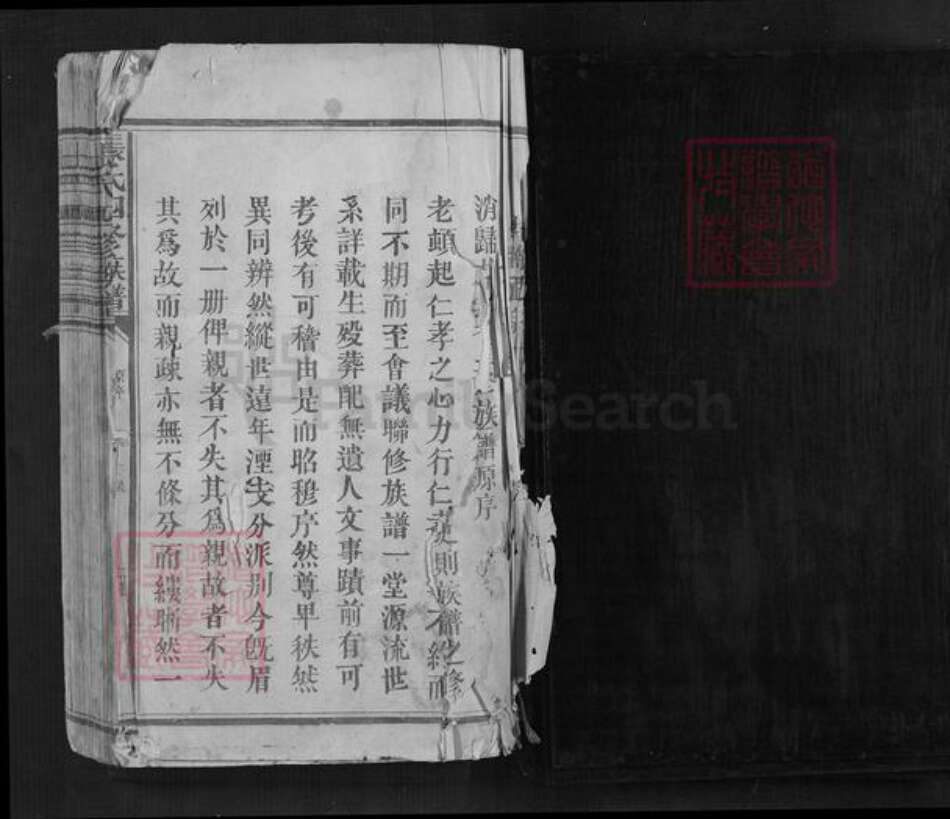 消歸 族譜原序
老頔起仁孝之心力行仁 則族譜之修
同不期而至會議聯修族譜一堂源流世
系詳載生殁葬配無遺人文事蹟前有可
考後有可稽由是而昭穆序然尊卑秩然
異同辨然縱世遠年湮支分派别今既眉
列於一册俾親者不失其爲親故者不失
其爲故而親疎亦無不條分而縷晣然一
張氏四修族譜
FamilySearch